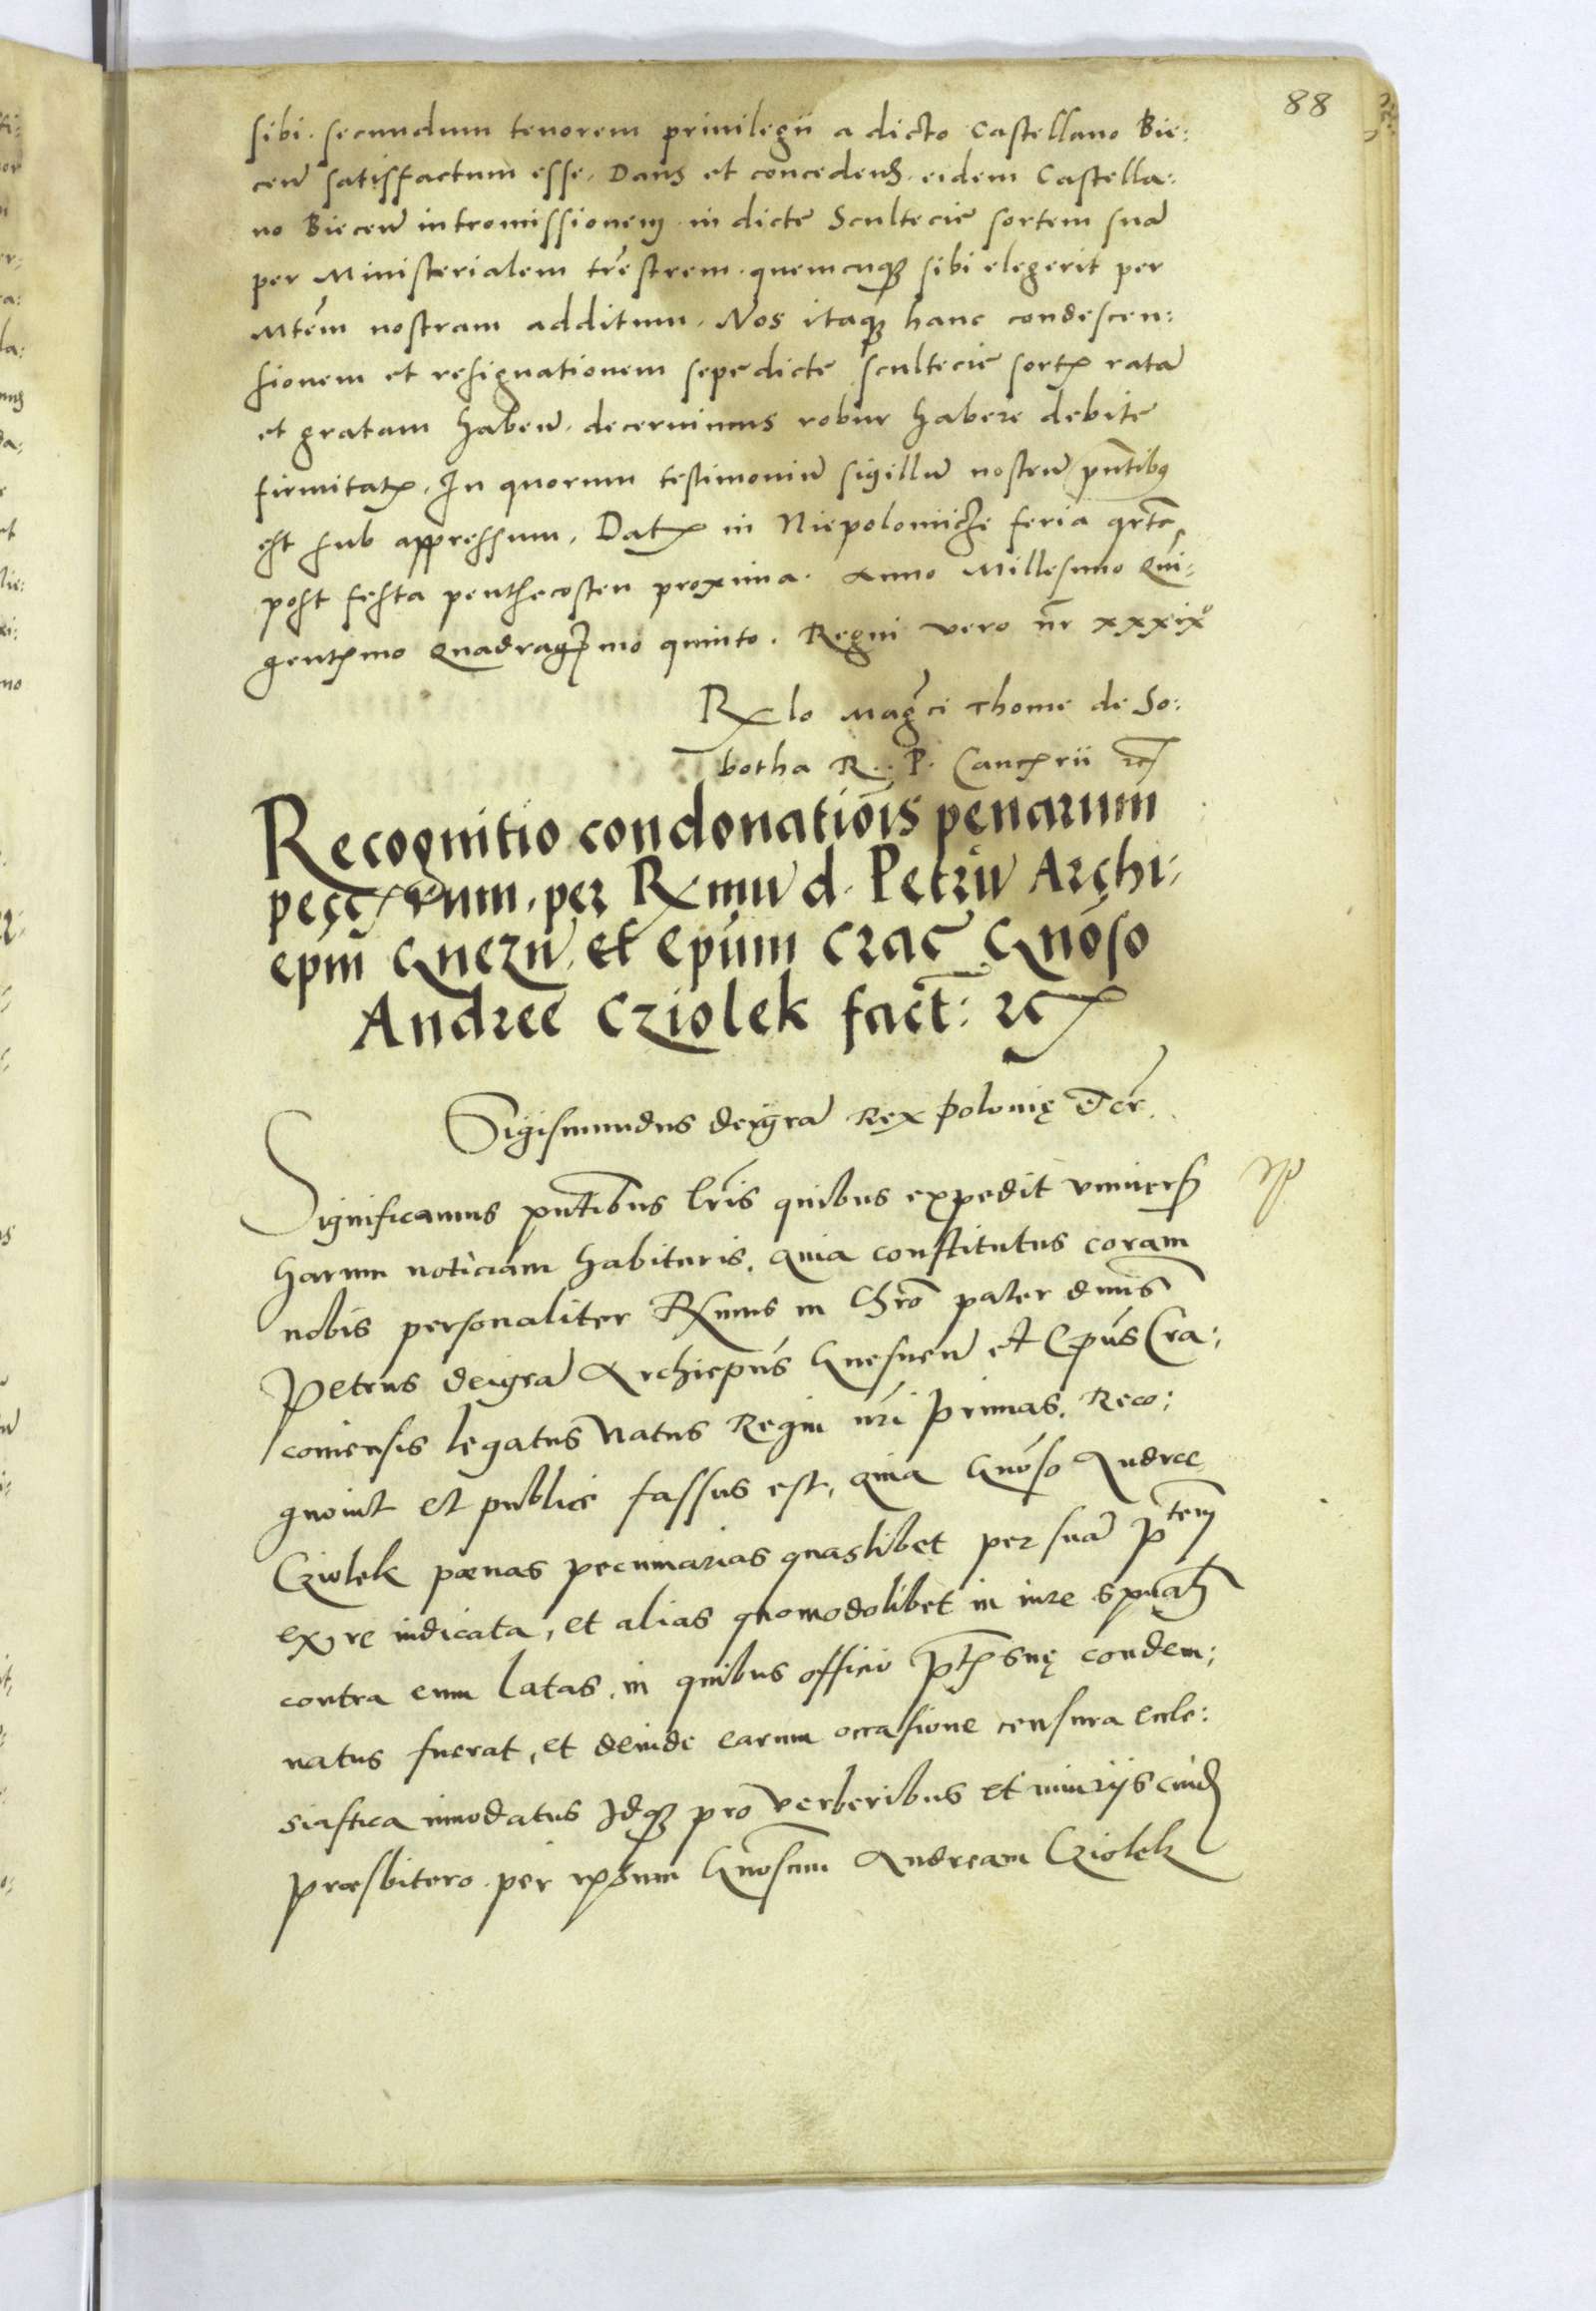 88
sibi. secundum tenorem privilegii a dicto Castellano Bie:
cen̄ satisfactum esse. Dans et concedens. eidem Castella:
no Biecen̄ intromissionem in dicte Scultecie sortem suā
per Ministerialem trēstrem. quemcuqȝ sibi elegerit per
Mtēm nostram additum. Nos itaqȝ hanc condescen:
sionem et resignationem sepedicte scultecie sortꝭ ratā
et gratam haben̄. decernimus robur habere debite
firmitatꝭ. In quorum testimoniū sigillū nostrū pn̄tibꝯ
est sub appressum. Datꝭ in Niepolomicze feria qrta
post festa penthecosten proxima. Anno Millesimo Qui:
gentꝭmo Quadragꝭmo quinto. Regni vero nr̄ xxxixº
Rlo Magci Thome de So:
botha R. P. Cancꝭrii ꝛc
Recognitio condonatiōis penarum
pecc rum. per Rmū d. Petrū Archi:
epm̄ Gnezn̄. et Epūm Crac̄ Gnōso
Andree Cziolek fact̄: ꝛc
Sigismundus dei gra Rex Polonię Etc̄r.
Significamus pn̄tibus lr̄is quibus expedit universꝭ
harum noticiam habituris. quia constitutus coram
nobis personaliter Rmus in Chro pater dnūs
Petrus dei gra Archiepūs Gnesnen̄ et Epūs Cra:
coviensis legatus Natus Regni nr̄i Primas. Reco:
gnovit et publice fassus est, quia Gnōso Andree
Cziolek pœnas pecuniarias quaslibet per suā ptem
ex re iudicata, et alias quomodolibet in iure spūalꝭ
contra eum latas. in quibus officio ptꝭ suę condem:
natus fuerat, et deinde earum occasione censura eccle:
siastica innodatus Idqȝ pro verberibus et iniurijs cuid
præsbitero per ipsum Gnōsum Andream Cziolek